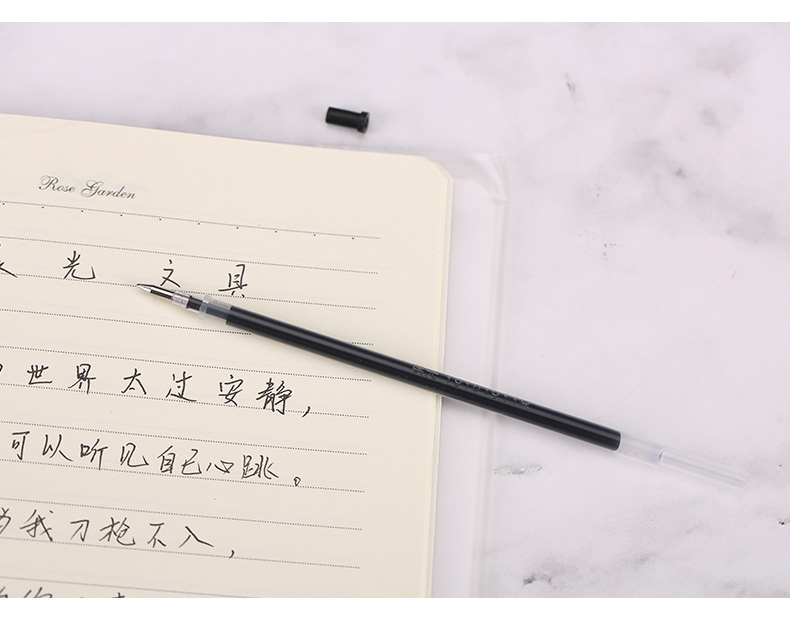 Rose Garden
光文具
世界太过安静，
可以听见自己心跳。
我刀枪不入，